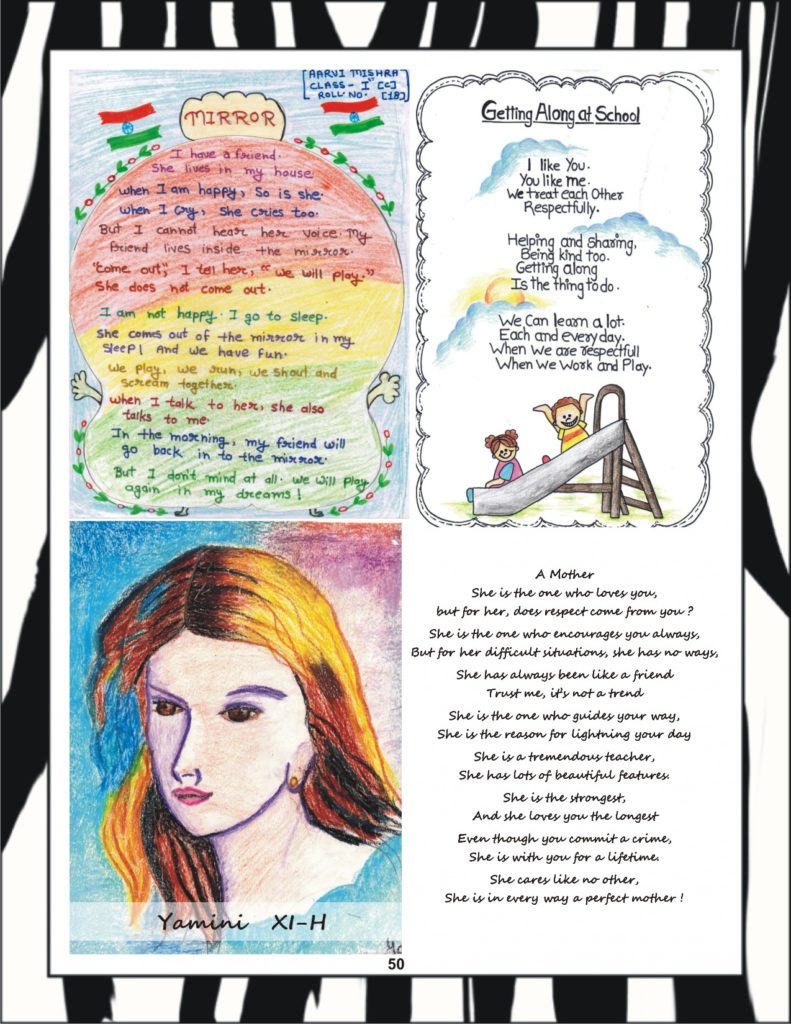 AARVI MISHRA
CLASS - Iˢᵗ [C]
ROLL NO. [18]
MIRROR
I have a friend.
She lives in my house
when I am happy, So is she.
when I cry, She cries too.
But I cannot hear her voice. My
friend lives inside the mirror.
"Come out", I tell her, "we will play."
She does not come out.
I am not happy. I go to sleep.
She comes out of the mirror in my
sleep! And we have fun.
We play, we run, we shout and
scream together.
when I talk to her, she also
talks to me.
In the morning, my friend will
go back in to the mirror.
But I don't mind at all. we will play
again in my dreams!
Getting Along at School
I like You.
You like me.
We treat each Other
Respectfully.
Helping and Sharing,
Being kind too.
Getting along
Is the thing to do.
We Can learn a lot.
Each and every day.
When We are respectfull
When We Work and Play.
Yamini XI-H
A Mother
She is the one who loves you,
but for her, does respect come from you ?
She is the one who encourages you always,
But for her difficult situations, she has no ways,
She has always been like a friend
Trust me, it's not a trend
She is the one who guides your way,
She is the reason for lightning your day
She is a tremendous teacher,
She has lots of beautiful features.
She is the strongest,
And she loves you the longest
Even though you commit a crime,
She is with you for a lifetime.
She cares like no other,
She is in every way a perfect mother !
50